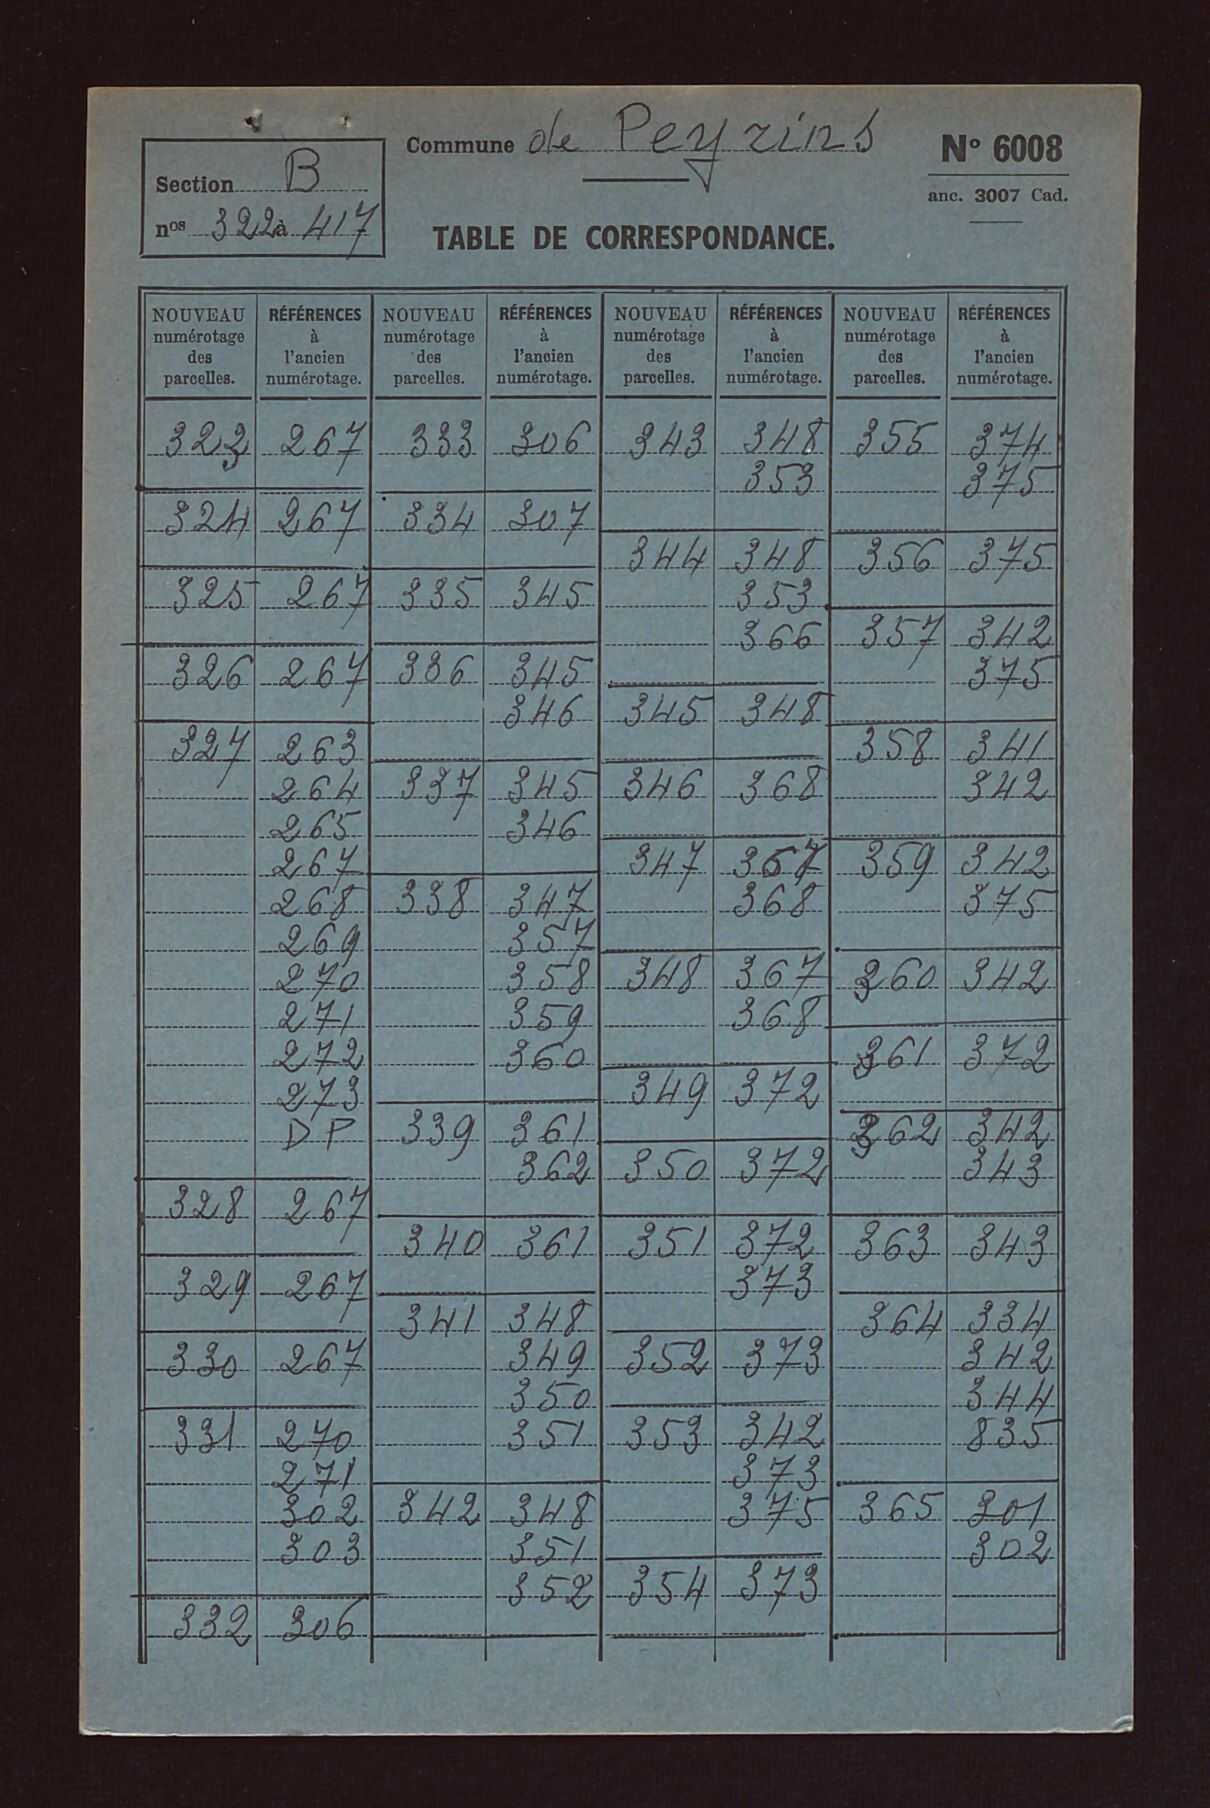 Commune de Peyrins
N° 6008
anc. 3007 Cad.
Section B
nos 322 à 417
TABLE DE CORRESPONDANCE.
NOUVEAU numérotage des parcelles.
RÉFÉRENCES à l'ancien numérotage.
NOUVEAU numérotage des parcelles.
RÉFÉRENCES à l'ancien numérotage.
NOUVEAU numérotage des parcelles.
RÉFÉRENCES à l'ancien numérotage.
NOUVEAU numérotage des parcelles.
RÉFÉRENCES à l'ancien numérotage.
323 267
324 267
325 267
326 267
327 263
264
265
267
268
269
270
271
272
273
DP
328 267
329 267
330 267
331 270
271
302
303
332 306
333 306
334 307
335 345
336 345
346
337 345
346
338 347
357
358
359
360
339 361
362
340 361
341 348
349
350
351
342 348
351
352
343 348
353
344 348
353
366
345 348
346 368
347 367
368
348 367
368
349 372
350 372
351 372
373
352 373
353 342
373
375
354 373
355 374
375
356 375
357 342
375
358 341
342
359 342
375
360 342
361 372
362 342
343
363 343
364 334
342
344
835
365 301
302